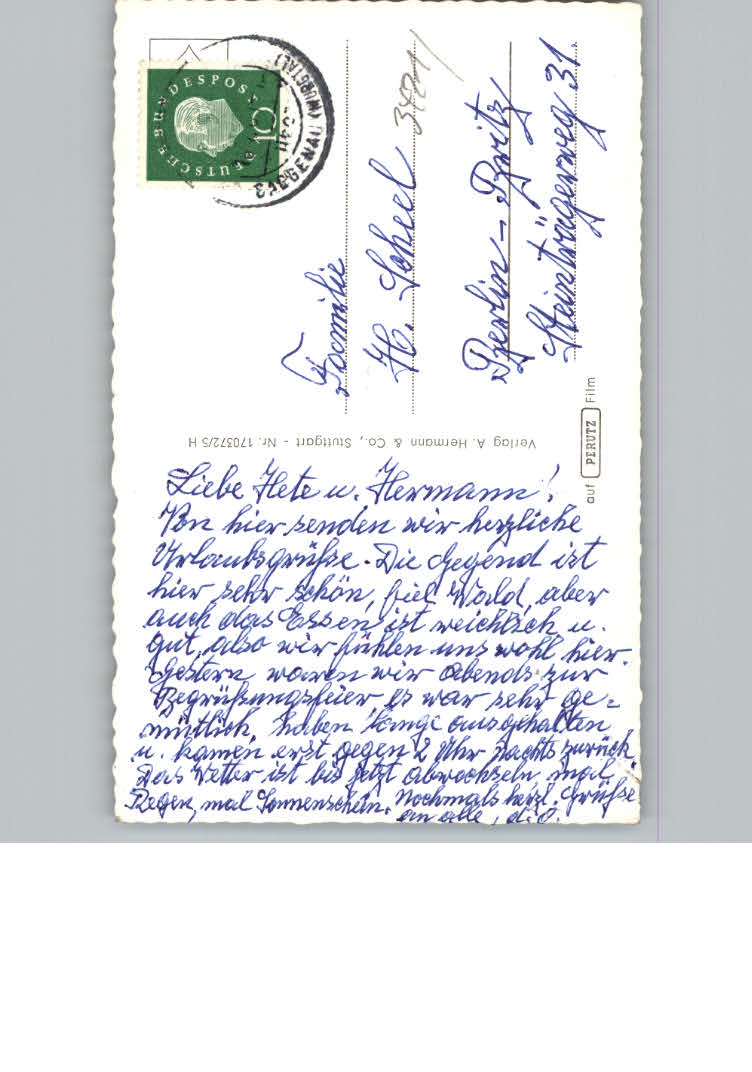 Liebe Hete u. Hermann!
Von hier senden wir herzliche
Urlaubsgrüße. Die Gegend ist
hier sehr schön, fiel Wald, aber
auch das Essen ist reichlich u.
gut, also wir fühlen uns wohl hier.
Gestern waren wir abends zur
Begrüßungsfeier, es war sehr ge=
mütlich, haben lange ausgehalten
u. kamen erst gegen 2 Uhr Nachts zurück.
Das Wetter ist bis jetzt abwechseln, mal
Regen, mal Sonnenschein. Nochmals herzl. Grüße
an alle, d. O.
Verlag A. Hermann & Co., Stuttgart - Nr. 170372/5 H
auf PERUTZ Film
Familie
H. Scheel
Berlin - Britz
Steinträgerweg 31.
DEUTSCHE BUNDESPOST
10
GAGGENAU (MURGTAL)